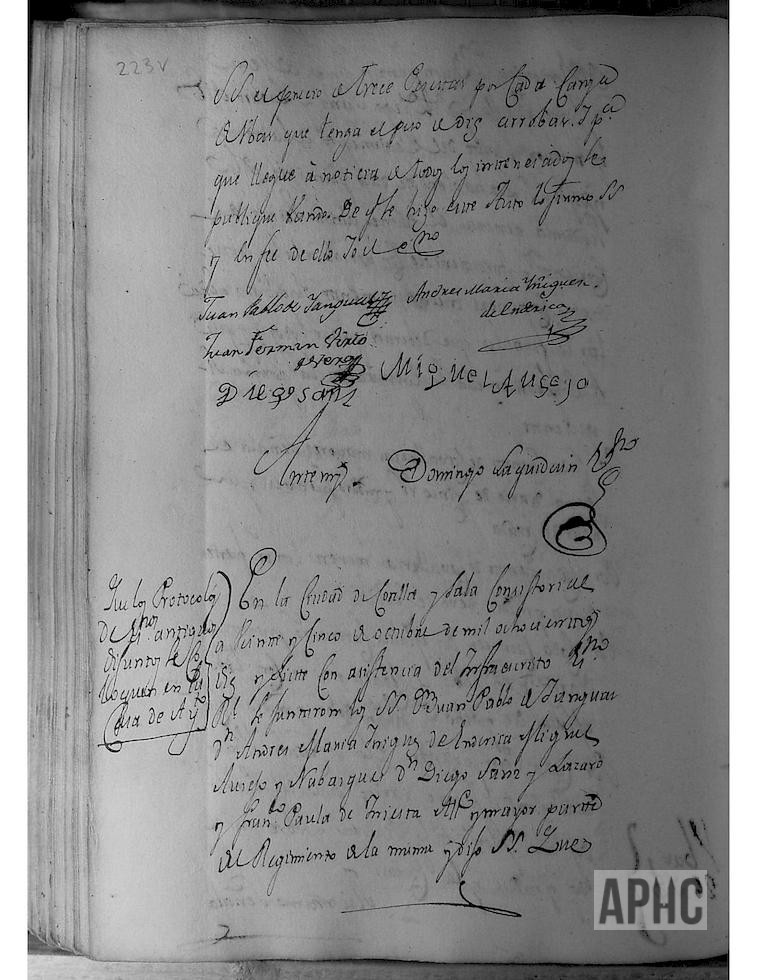 223v
SS. el precio de trece Pesetas por Cada Carga
de Ubas que tenga el peso de diz arrobas. Y pª
que llegue à noticia de todos los intereciados se
publique Vando. De q.e se hizo este Auto lo firmo SS
y en fee de ello Yo el Esno
Juan Pablo de Sanguas Andres Maria Yñiguez.
de Enderica
Juan Fermin Virto
de Vera
Diego Sanz Miguel Ausejo
Antemi Domingo Laquidain Esno
Que los Protocolos
de Esnos antiguos
difuntos se Co
loquen en la
Cria de Ayto
En la Ciudad de Corella y Sala Consistorial
a Veinte y Cinco de octubre de mil ochocientos
diz y siete Con asistencia del Infraescrito Esno
Rl. se juntaron los SS. Dn Juan Pablo de Sanguas
dn Andres Maria Iniguez de Enderica Miguel
Ausejo y Nabasques dn Diego Sanz y Lazaro
y Franco Paula de Iniesta Alc ymayor parte
del Regimiento de la misma y dijo SS. Que
APHC